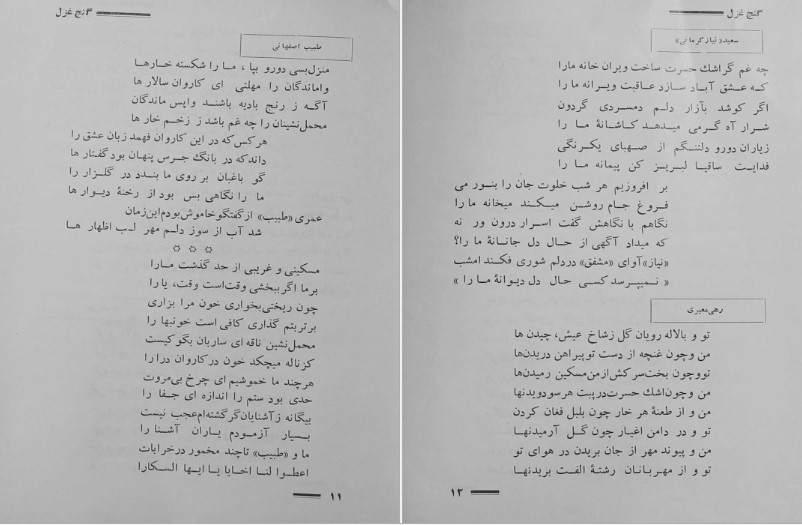 گنج غزل
طبیب اصفهانی
منزل‌بسی دورو بپا ، ما را شکسته خارها
واماندگان را مهلتی ای کاروان سالار ها
آگه ز رنج بادیه باشند واپس ماندگان
محمل‌نشینان را چه غم باشد ز زخم خار ها
هرکس‌که در این کاروان فهمد زبان عشق را
داندکه در بانگ جرس پنهان بودگفتار ها
گو باغبان بر روی ما بندد در گلزار را
ما را نگاهی بس بود از رخنهٔ دیوار ها
عمری «طبیب» ازگفتگوخاموش‌بودم‌این‌زمان
شد آب از سوز دلم مهر لب اظهار ها
* * *
مسکینی و غریبی از حد گذشت مارا
برما اگرببخشی وقت‌است وقت، یارا
چون ریختی‌بخواری خون مرا بزاری
برتربتم گذاری کافی است خونبها را
محمل‌نشین ناقه‌ای ساربان بگوکیست
کزناله میچکد خون درکاروان درارا
هرچند ما خموشیم ای چرخ بی‌مروت
حدی بود ستم را اندازه ای جفا را
بیگانه زآشنایان‌گرگشته‌ام‌عجب نیست
بسیار آزمودم یاران آشنا را
ما و «طبیب» تاچند مخمور درخرابات
اعطوا لنا احایا یا ایها السکارا
۱۱
گنج غزل
سعید«نیازکرمانی»
چه غم گراشك حسرت ساخت ویران خانه مارا
که عشق آباد سازد عاقبت ویرانه ما را
اگر کوشد بآزار دلم دمسردی گردون
شرار آه گرمی میدهد کاشانهٔ ما را
زیاران دورو دلتنگم از صهبای یکرنگی
فدایت ساقیا لبریز کن پیمانه ما را
بر افروزیم هر شب خلوت جان را بنور می
فروغ جام روشن میکند میخانه ما را
نگاهم با نگاهش گفت اسرار درون ور نه
که میداد آگهی از حال دل جانانهٔ ما را؟
«نیاز»آوای «مشفق» دردلم شوری فکند امشب
« نمیپرسد کسی حال دل دیوانهٔ ما را »
رهی‌معیری
تو و بالاله رویان گل زشاخ عیش، چیدن ها
من وچون غنچه از دست توپیراهن دریدن‌ها
تووچون بخت‌سرکش‌ازمن‌مسکین رمیدن‌ها
من وچون‌اشك حسرت‌درپیت هرسودویدنها
من و از طعنهٔ هر خار چون بلبل فغان کردن
تو و در دامن اغیار چون گل آرمیدنها
من و پیوند مهر از جان بریدن در هوای تو
تو و از مهربانان رشتهٔ الفت بریدنها
۱۲